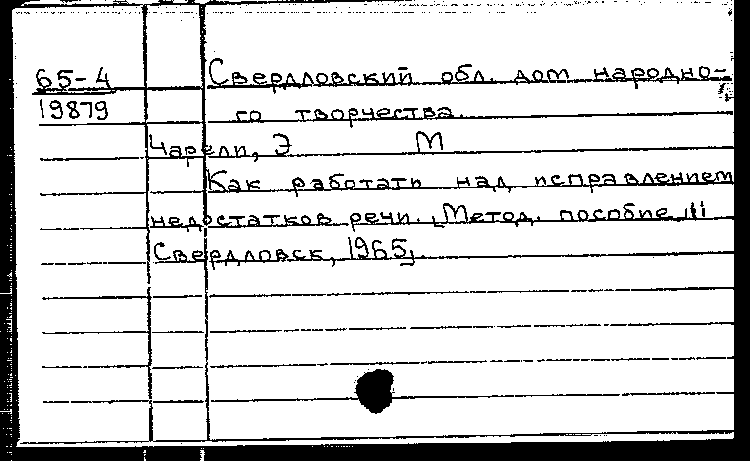 65-4 Свердловский обл. дом народно-
19879 го творчества.
Чарели, Э М
Как работать над исправлением
недостатков речи. [Метод. пособие]
Свердловск, 1965.